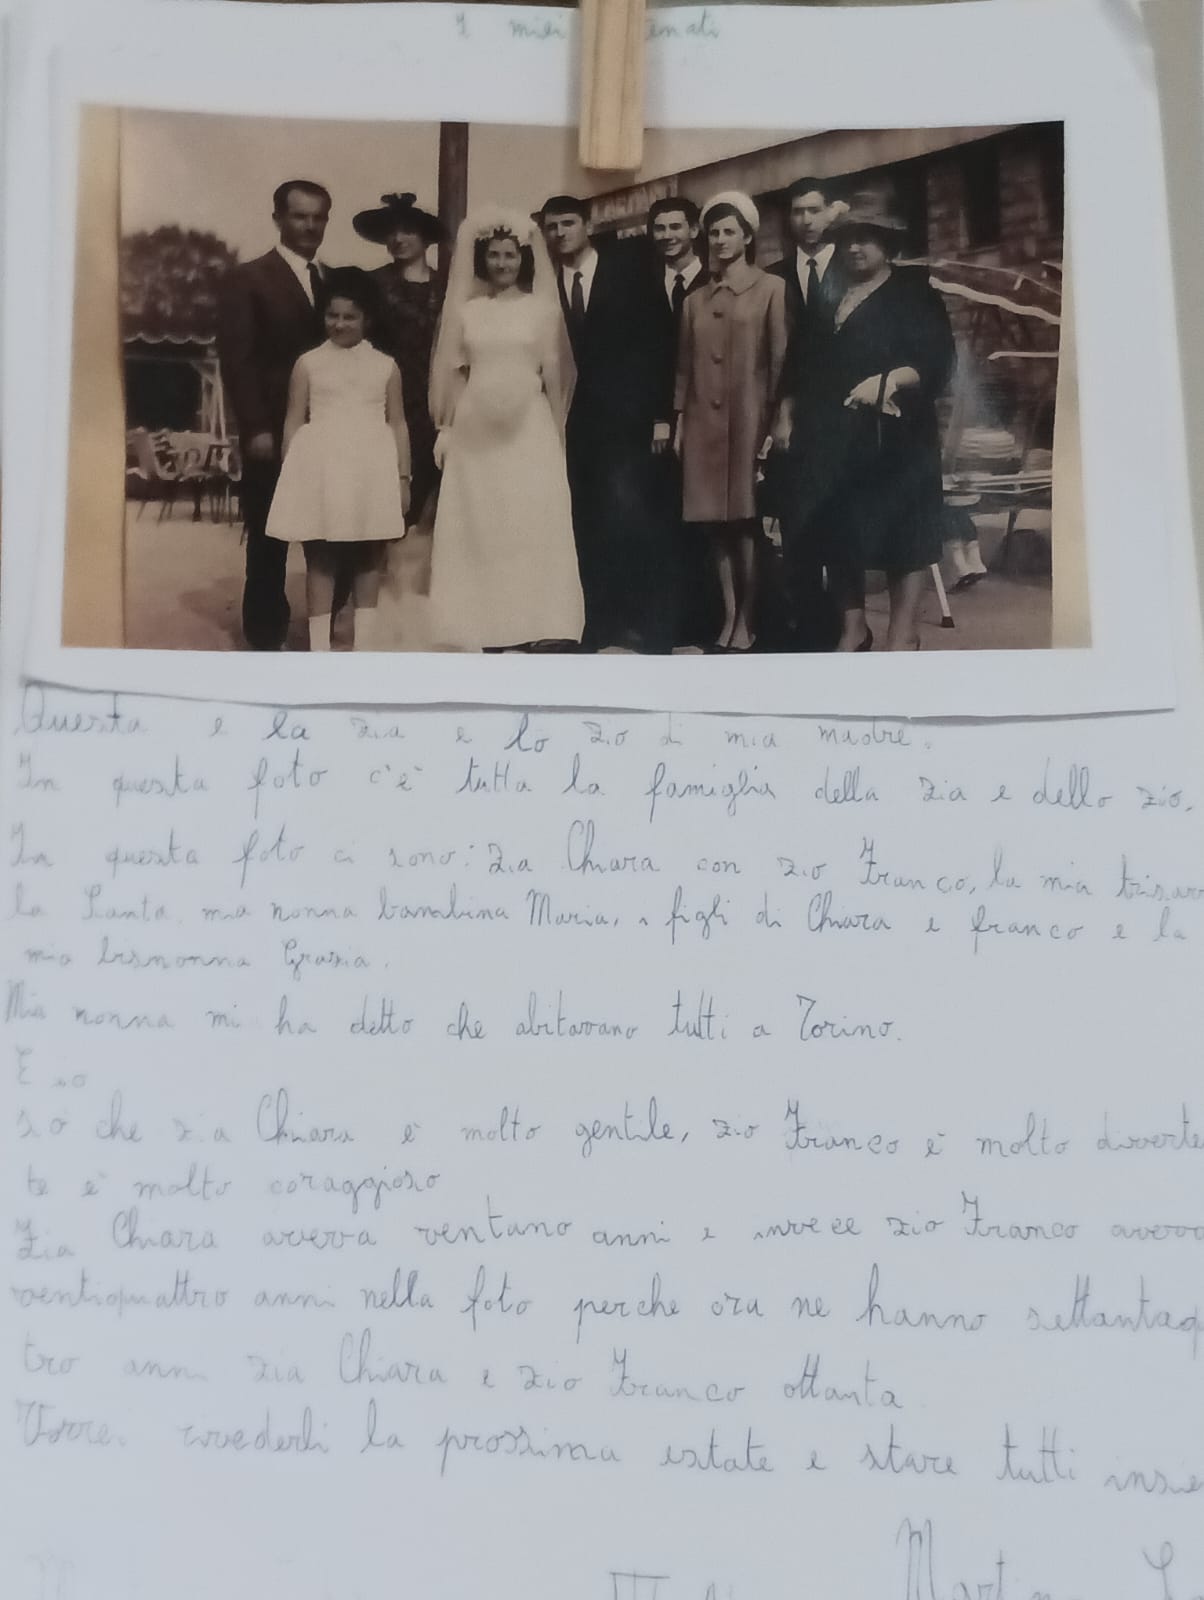 I miei enati
Questa e la zia e lo zio di mia madre.
In questa foto c'è tutta la famiglia della zia e dello zio.
In questa foto ci sono: zia Chiara con zio Franco, la mia trisav
la Santa, mia nonna bambina Maria, i figli di Chiara e franco e la
mia bisnonna Grazia.
Mia nonna mi ha detto che abitavano tutti a Torino.
E so
so che zia Chiara è molto gentile, zio Franco è molto diverte
te è molto coraggioso
Zia Chiara aveva ventuno anni e invece zio Franco aveva
ventiquattro anni nella foto perche ora ne hanno settantaq
tro anni zia Chiara e zio Franco ottanta
Vorrei rivederli la prossima estate e stare tutti insie